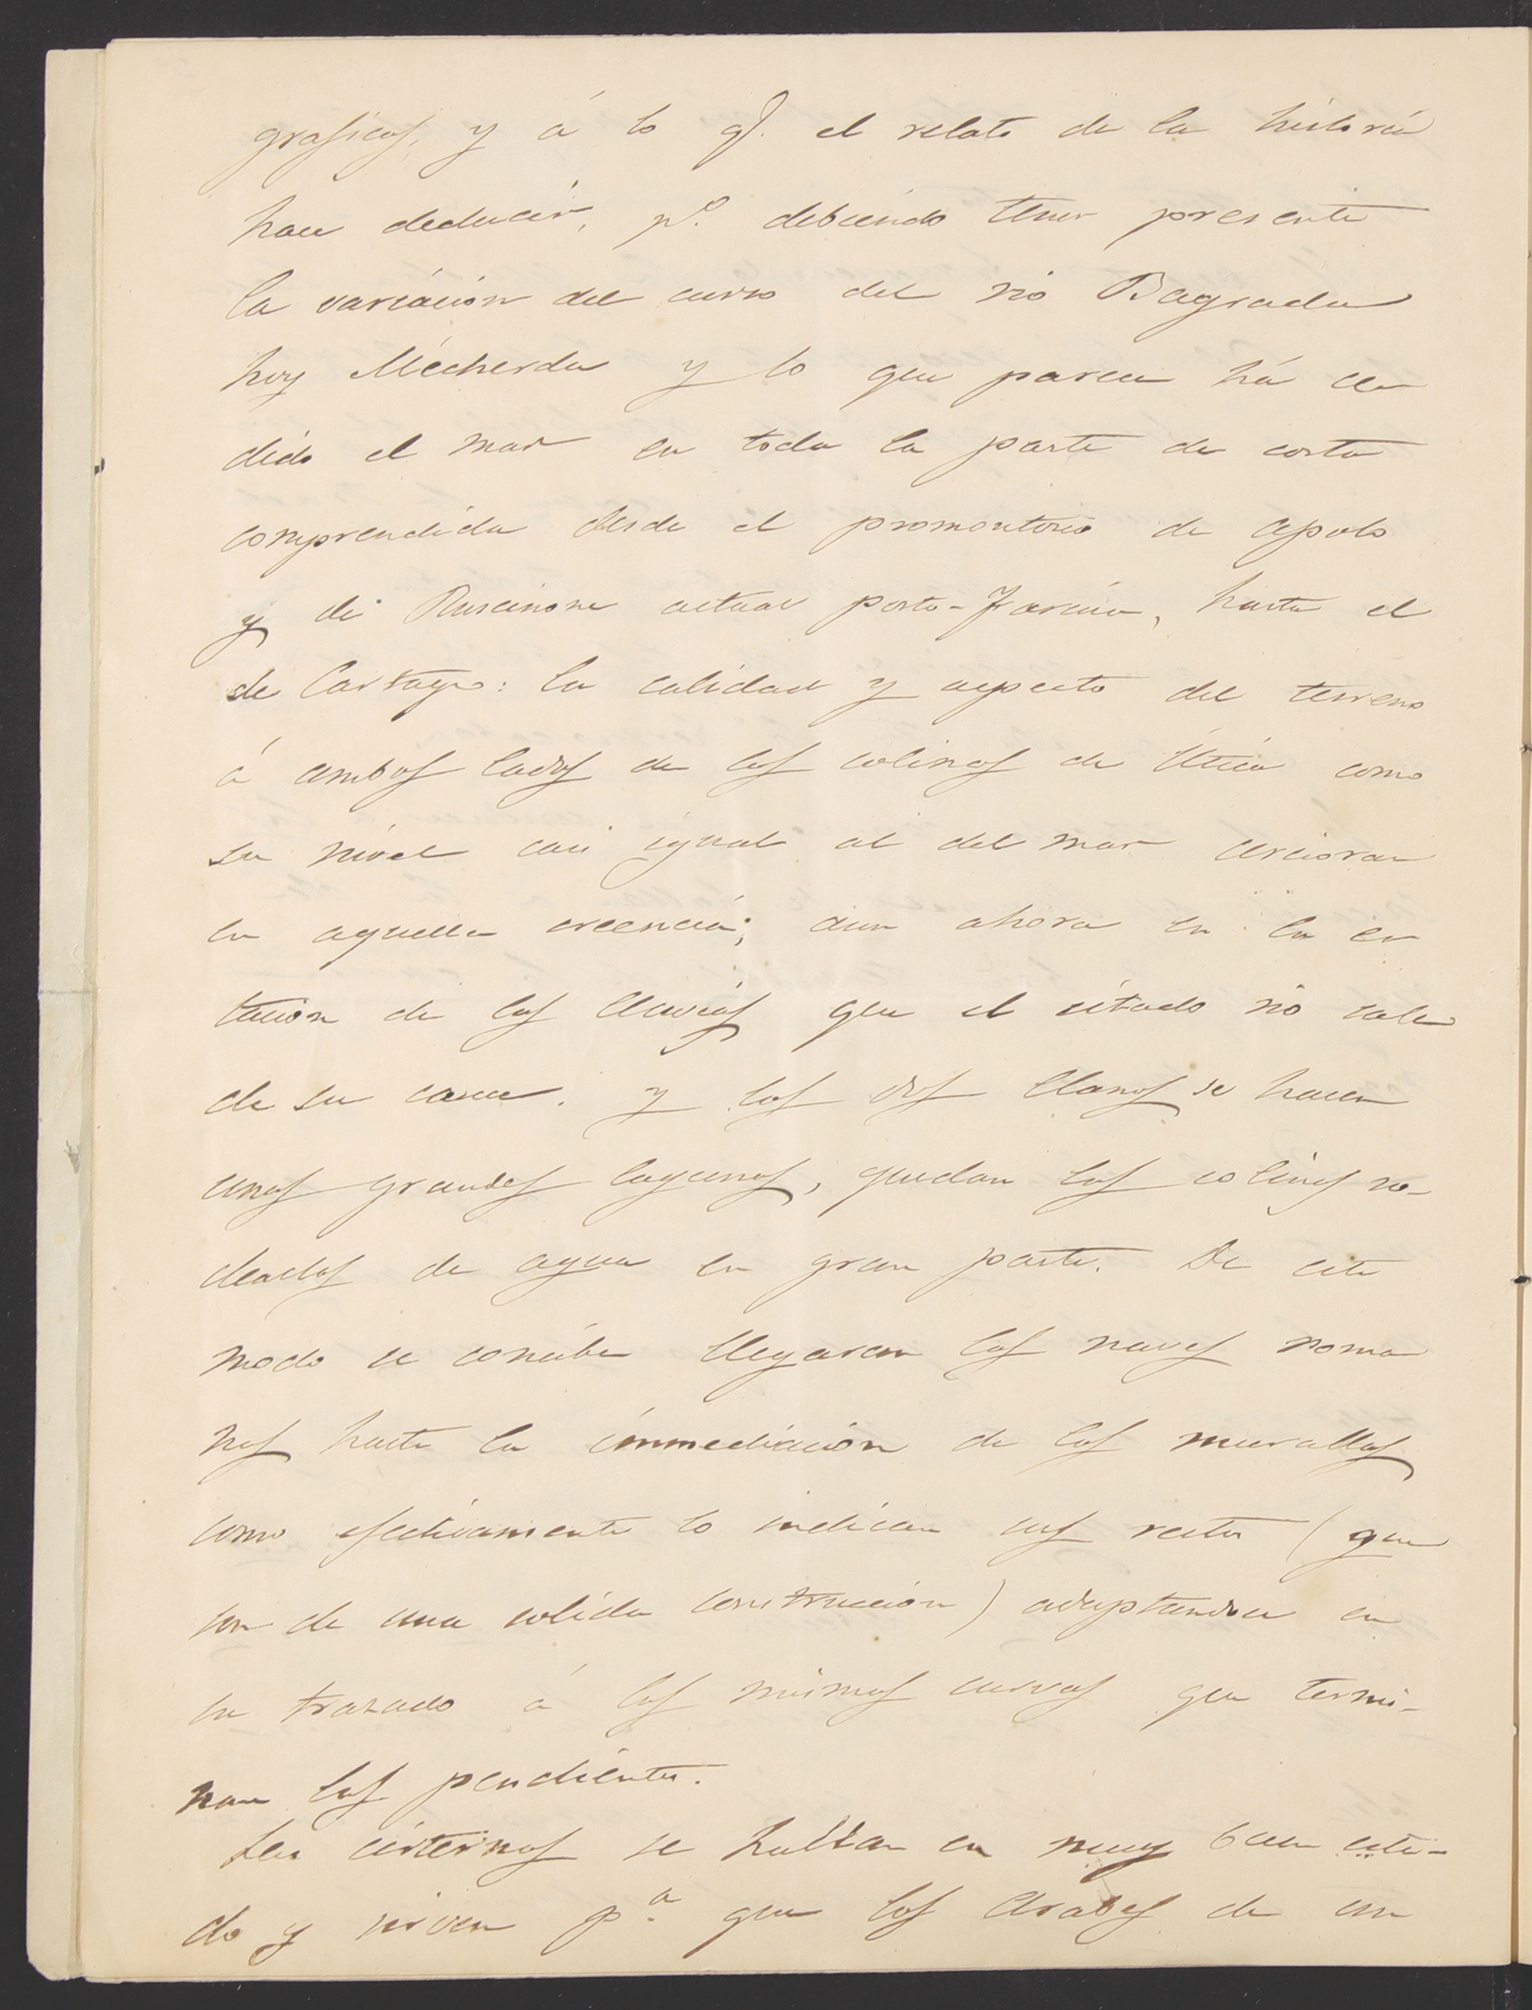 graficos, y á lo q.e el relato de la historia
hace deducir, p.o debiendo tener presente
la variacion del curso del rio Bagrada
hoy Mécherda y lo que parece há ce
dido el mar en toda la parte de costa
comprendida desde el promontorio de Apolo
y de Ruscinone actual porto-Farina, hasta el
de Cartago: la calidad y aspecto del terreno
á ambos lados de las colinas de Utica como
su nivel casi igual al del mar
en aquella creencia; aun ahora en la es
tacion de las lluvias que el citado rio sale
de su cauce. y los dos llanos se hacen
unas grandes lagunas, quedan las colinas ro-
deadas de agua en gran parte. De este
modo se concibe llegaran las naves roma
nas hasta la inmediacion de las murallas
como efectivamente lo indican sus restos (que
son de una solida construccion) adaptandose en
su trazado á las mismas curvas que termi-
nan las pendientes.
Las cisternas se hallan en muy buen esta-
do y sirven p.a que los Arabes de un